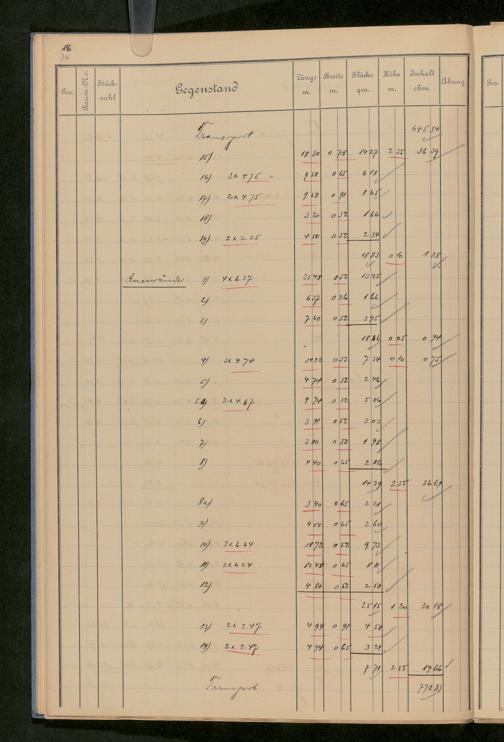 16
34
Pos. Raum-No. Stückzahl Gegenstand Länge m. Breite m. Fläche qm. Höhe m. Inhalt cbm. Abzug Pos.
Transport 645 34
15) 18 30 0 78 14 27 2 55 36 39
16) 2x4.75 9 50 0 65 6 18
17) 2x4.75 9 50 0 91 8 65
18) 3 20 0 52 1 66
19) 2x2.25 4 50 0 52 2 34
18 83 0 10 1 88
1) 4x6.37 25 48 0 52 13 25
2) 6 37 0 26 1 66
3) 7 60 0 52 3 95
18 86 0 05 0 94
4) 3x4.74 14 22 0 53 7 54 0 10 0 75
5) 4 74 0 52 2 46
5a) 2x4.87 9 74 0 52 5 06
6) 3 91 0 52 2 03
7) 3 80 0 52 1 98
8) 4 40 0 65 2 86
14 39 2 55 36 69
8a) 3 40 0 65 2 21
9) 4 00 0 65 2 60
10) 3x6.24 18 72 0 52 9 73
11) 2x6.24 12 48 0 65 8 11
12) 4 80 0 52 2 50
25 15 1 20 30 18
13) 2x2.47 4 94 0 91 4 50
14) 2x2.47 4 94 0 65 3 21
7 71 2 55 19 66
Transport 771 83